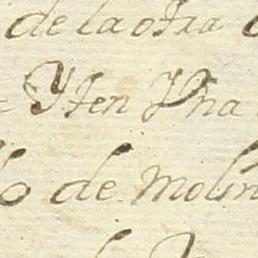 de la otra
Yten Vna
de Molin